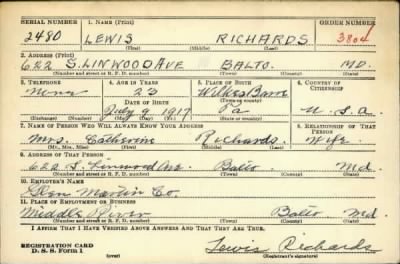 SERIAL NUMBER 1. NAME (Print) ORDER NUMBER
2480 LEWIS RICHARDS 3804
(First) (Middle) (Last)
2. ADDRESS (Print)
622 S. LINWOOD AVE BALTO. MD.
(Number and street or R. F. D. number) (Town) (County) (State)
3. TELEPHONE 4. AGE IN YEARS 5. PLACE OF BIRTH 6. COUNTRY OF CITIZENSHIP
None 23 Wilkes Barre
DATE OF BIRTH (Town or county)
July 9 1917 Pa U. S. A.
(Mo.) (Day) (Yr.) (State or country)
7. NAME OF PERSON WHO WILL ALWAYS KNOW YOUR ADDRESS 8. RELATIONSHIP OF THAT PERSON
Mrs Catherine Richards Wife
(Mr., Mrs., Miss) (First) (Middle) (Last)
9. ADDRESS OF THAT PERSON
622 S. Linwood Ave. Balto Md
(Number and street or R. F. D. number) (Town) (County) (State)
10. EMPLOYER'S NAME
Glen Martin Co.
11. PLACE OF EMPLOYMENT OR BUSINESS
Middle River Balto Md.
(Number and street or R. F. D. number) (Town) (County) (State)
I AFFIRM THAT I HAVE VERIFIED ABOVE ANSWERS AND THAT THEY ARE TRUE.
REGISTRATION CARD
D. S. S. Form 1 (over) Lewis Richards
(Registrant's signature)